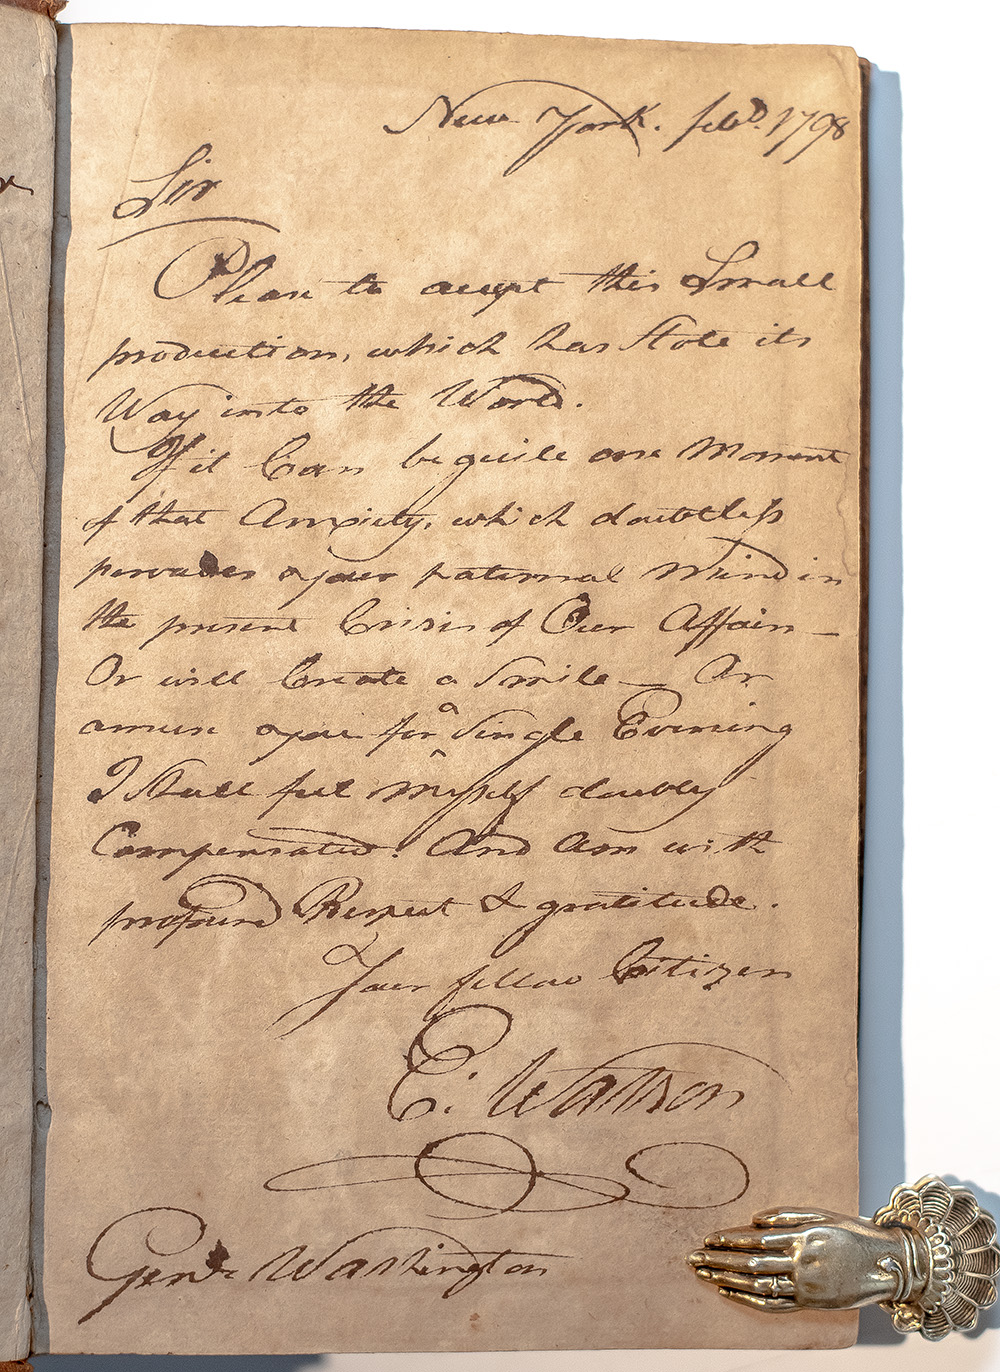 New York. feb.d 1798
Sir
Please to accept this Small
production, which has Stole its
Way into the World.
If it Can beguile one Moment
of that Anxiety, which doubtless
pervades your paternal Mind in
the present Crisis of Our Affairs—
Or will Create a Smile— Or
amuse you for a Single Evening
I Shall feel myself doubly
Compensated. And am with
profound Respect & gratitude.
Your fellow Citizen
E. Watson
Genl. Washington